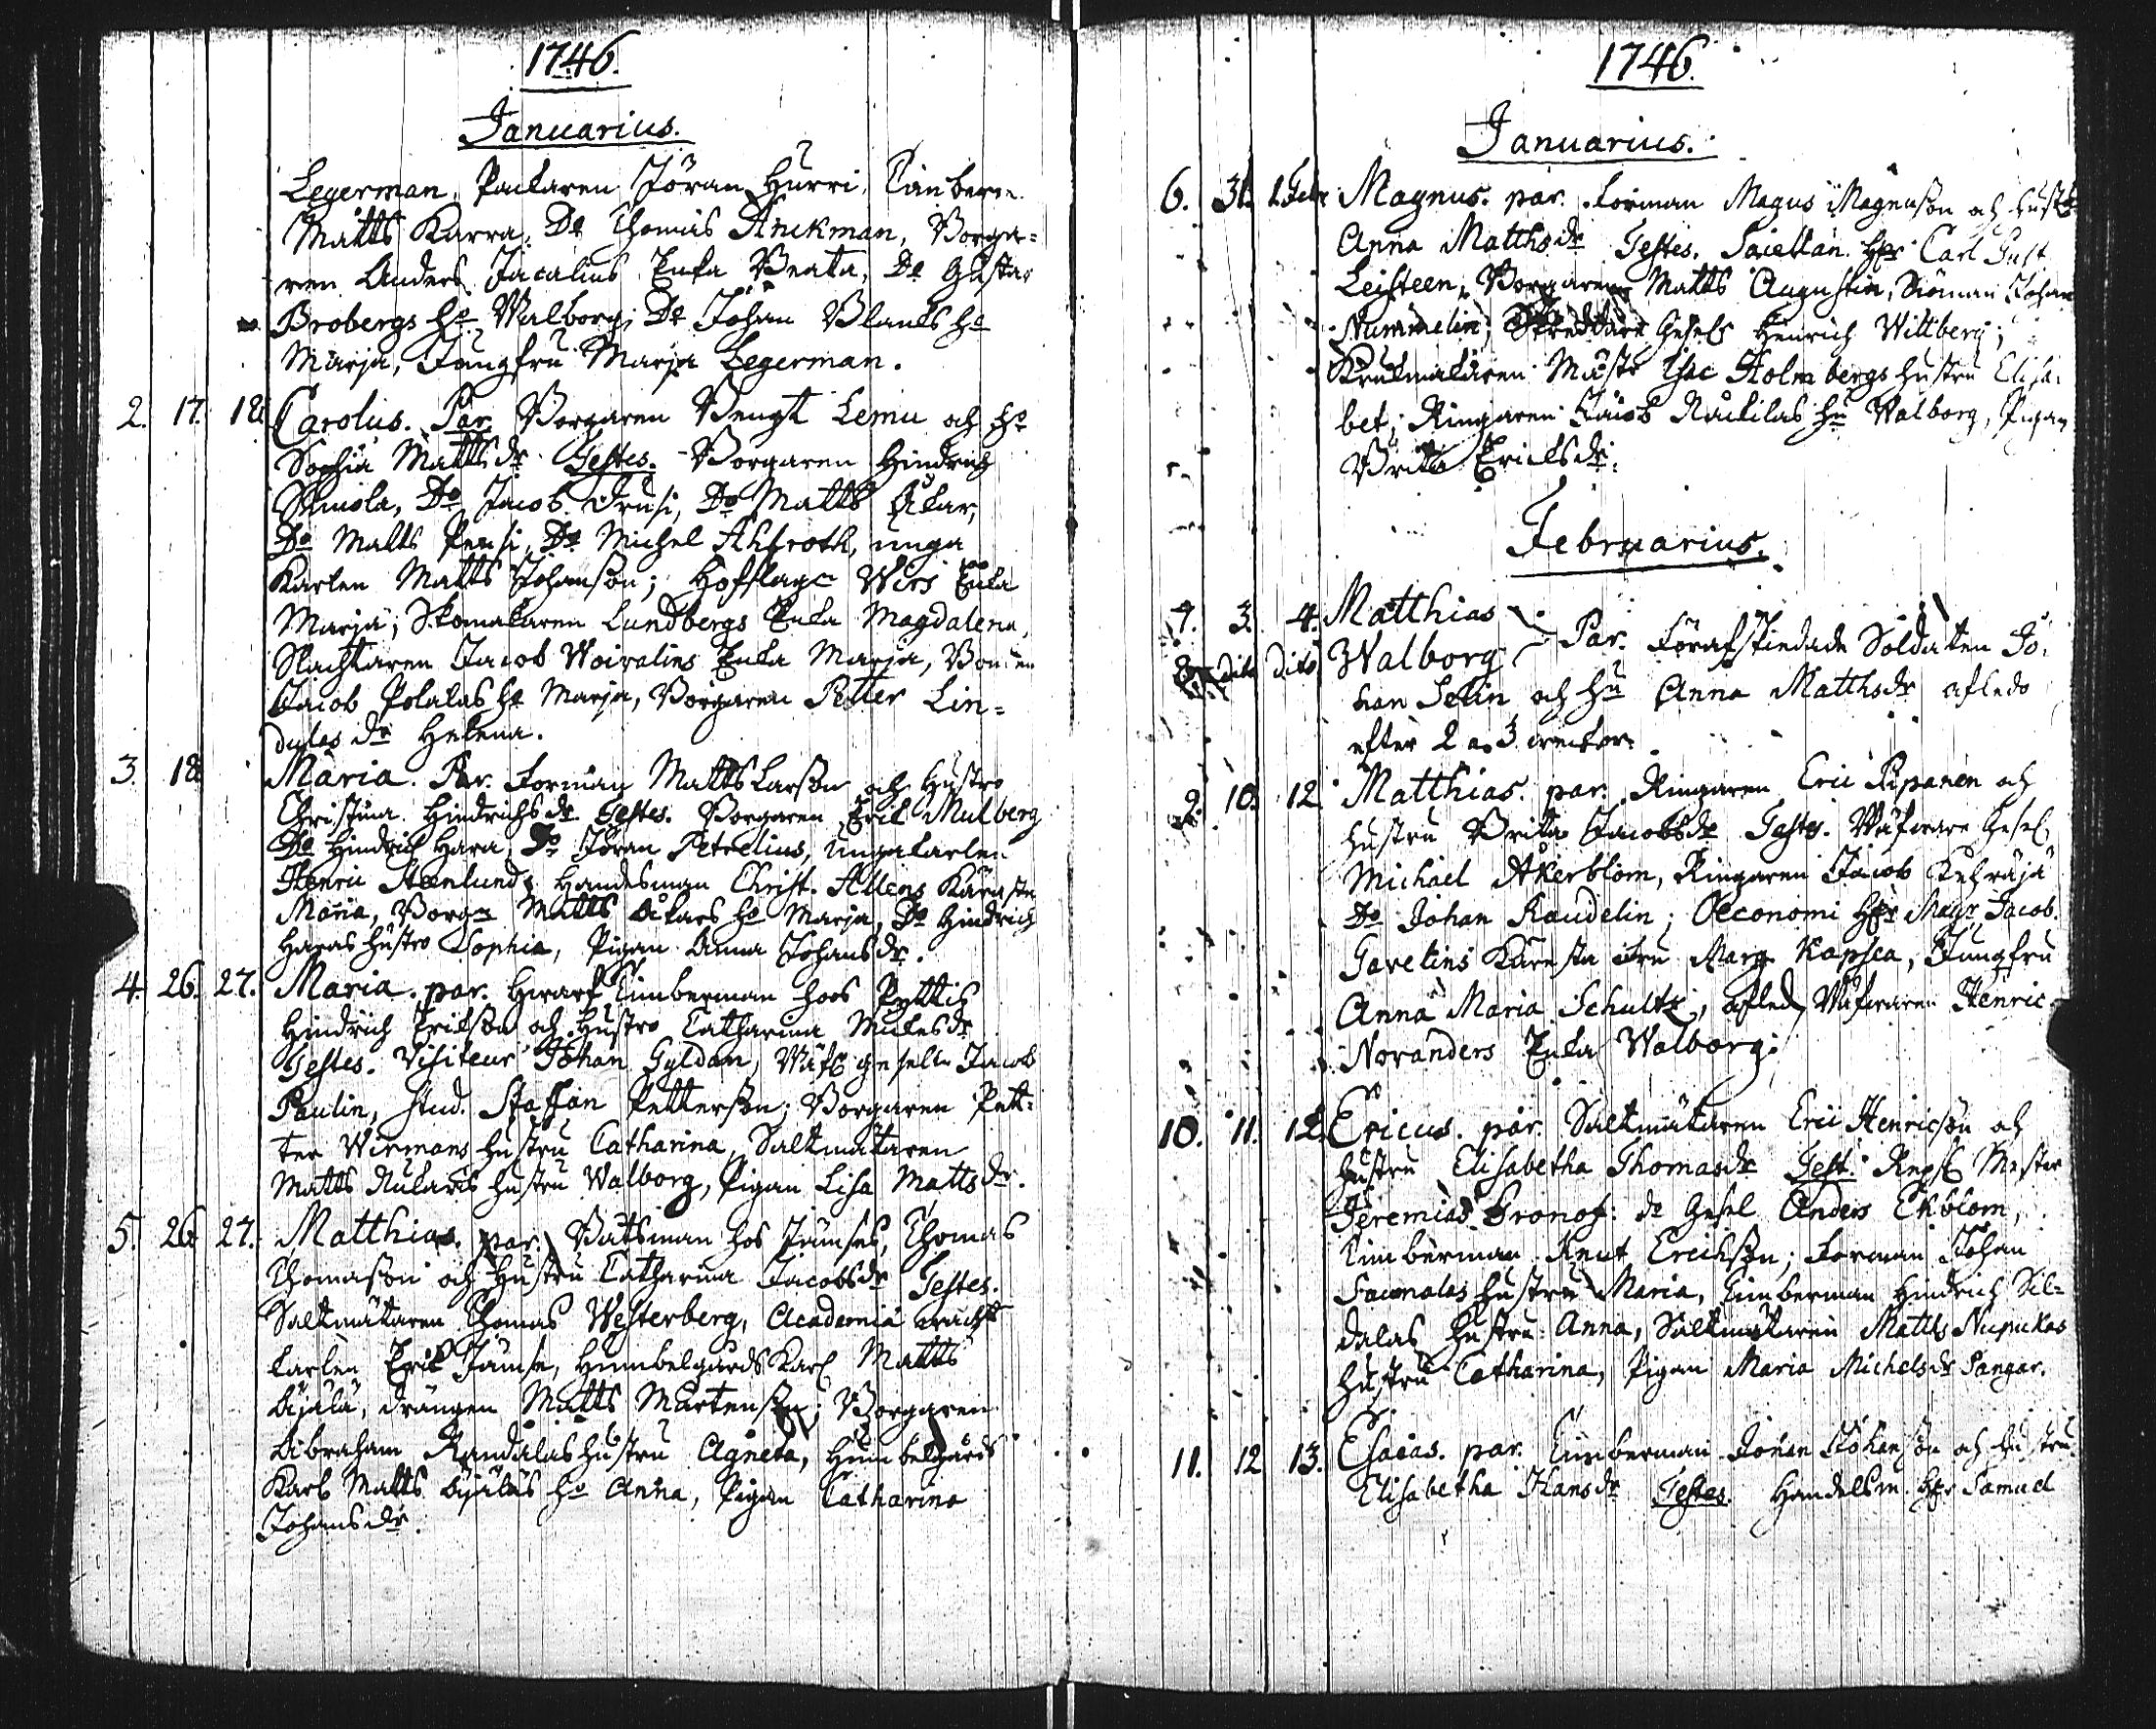 1746.
Januarius.
Legerman, Packaren Jöran Hurri, Timberm.
Matts Karra, Do Thomas Anckman, Borga=
ren Anders Jacalins Enka Beata, Do Gustav
Brobergs ho Walborg; Do Johan Blanks ho
Marja, Jungfru Marja Legerman.
2. 17. 18. Carolus. Par. Borgaren Bengt Lemu och ho
Sophia Matts dr Testes. Borgaren Hindrich
Do Jacob Do Matts
Do Matts Do Michel Ahlroth, unga
Karlen Matts Johansson; Hofslag. Enka
Marja; Skomakaren Lundbergs Enka Magdalena,
Slachtaren Jacob Woivalins Enka Marja, Bonden
Jacob Polalas ho Marja, Borgaren Petter Lin=
dulas dr Helena.
3. 18. Maria. Par. Forman Matts Larsson och Hustro
Christina Hindrichs dr Testes. Borgaren Eric Mulberg
Do Hindrich Hara, Do Jöran Petrelius, Ungakarlen
Henric Stenlund; Handesman Christ. Allens Käresta
Maria, Borg. Matts ho Marja, Do Hindrich
Haras Hustro Sophia, Pigan Anna Johansdr.
4. 26. 27. Maria. par. Timberman hoos
Hindrich Ericsson och Hustro Catharina dr
Testes. Visiteur Johan Gyldan, gesellen Jacob
Paulin, stud. Staffan Pettersson; Borgaren Pet=
ter Wirmans Hustru Catharina, Saltmätaren
Matts Hustru Walborg, Pigan Lisa Mattsdr.
5. 26. 27. Matthias. par. Båtsman hos Thomas
Thomasson och Hustru Catharina Jacobsdr Testes.
Saltmätaren Thomas Westerberg, Academiæ wacht
karlen Eric Humbelgårds Karl Matts
Äijälä, drängen Matts Mårtensson; Borgaren
Abraham Randalas Hustru Agneta, Humbelgårds
Karl Matts Äijäläs ho Anna, Pigan Catharina
Johansdr.
1746.
Januarius.
6. 31. 1. Febr. Magnus. par. Forman Magnus Magnusson och Hust.
Anna Matthsdr Testes. Hr Carl Gust.
Leisteen, Borgaren Matts Augustin, Siöman Johan
Nummelin, Gesell Henrich Wittberg;
Krukmakaren Mäst. Isac Holmbergs Hustru Elisa=
bet; Ringaren Jacob hu Walborg, Pigan
Brita Ericsdr.
Februarius.
7. 3. 4. Matthias
8. dito dito Walborg Par. Förafskedade Soldaten Jo=
han Selin och hu Anna Matthsdr afledo
efter 2 a 3 weckor.
9. 10. 12. Matthias. par. Ringaren Eric Pipanen och
Hustru Brita Jacobsdr Testes. Wäfware Gesel
Michael Åkerblom, Ringaren Jacob
Do Johan Raudelin; Oeconomi Hr Magr Jacob
Gavelins Käresta Fru Marg. Kapsea, Jungfru
Anna Maria Schultz, afled. Wäfwaren Henric
Novanders Enka Walborg.
10. 11. 12. Ericus. par. Saltmätaren Eric Henricson och
Hustru Elisabetha Thomasdr Test. Mester
Jeremias Gronof: do Gesel Anders Ekblom,
Timberman Knut Erichsson; Forman Johan
Hustru Maria, Timberman Hindrich Sil=
dalas Hustru Anna, Saltmätaren Matts Nupukas
Hustru Catharina, Pigan Maria Michelsdr Pangar.
11. 12 13. Esaias. par. Timberman Johan Johansson och Hustru
Elisabetha Hansdr Testes. Handelsm. Hr Samuel